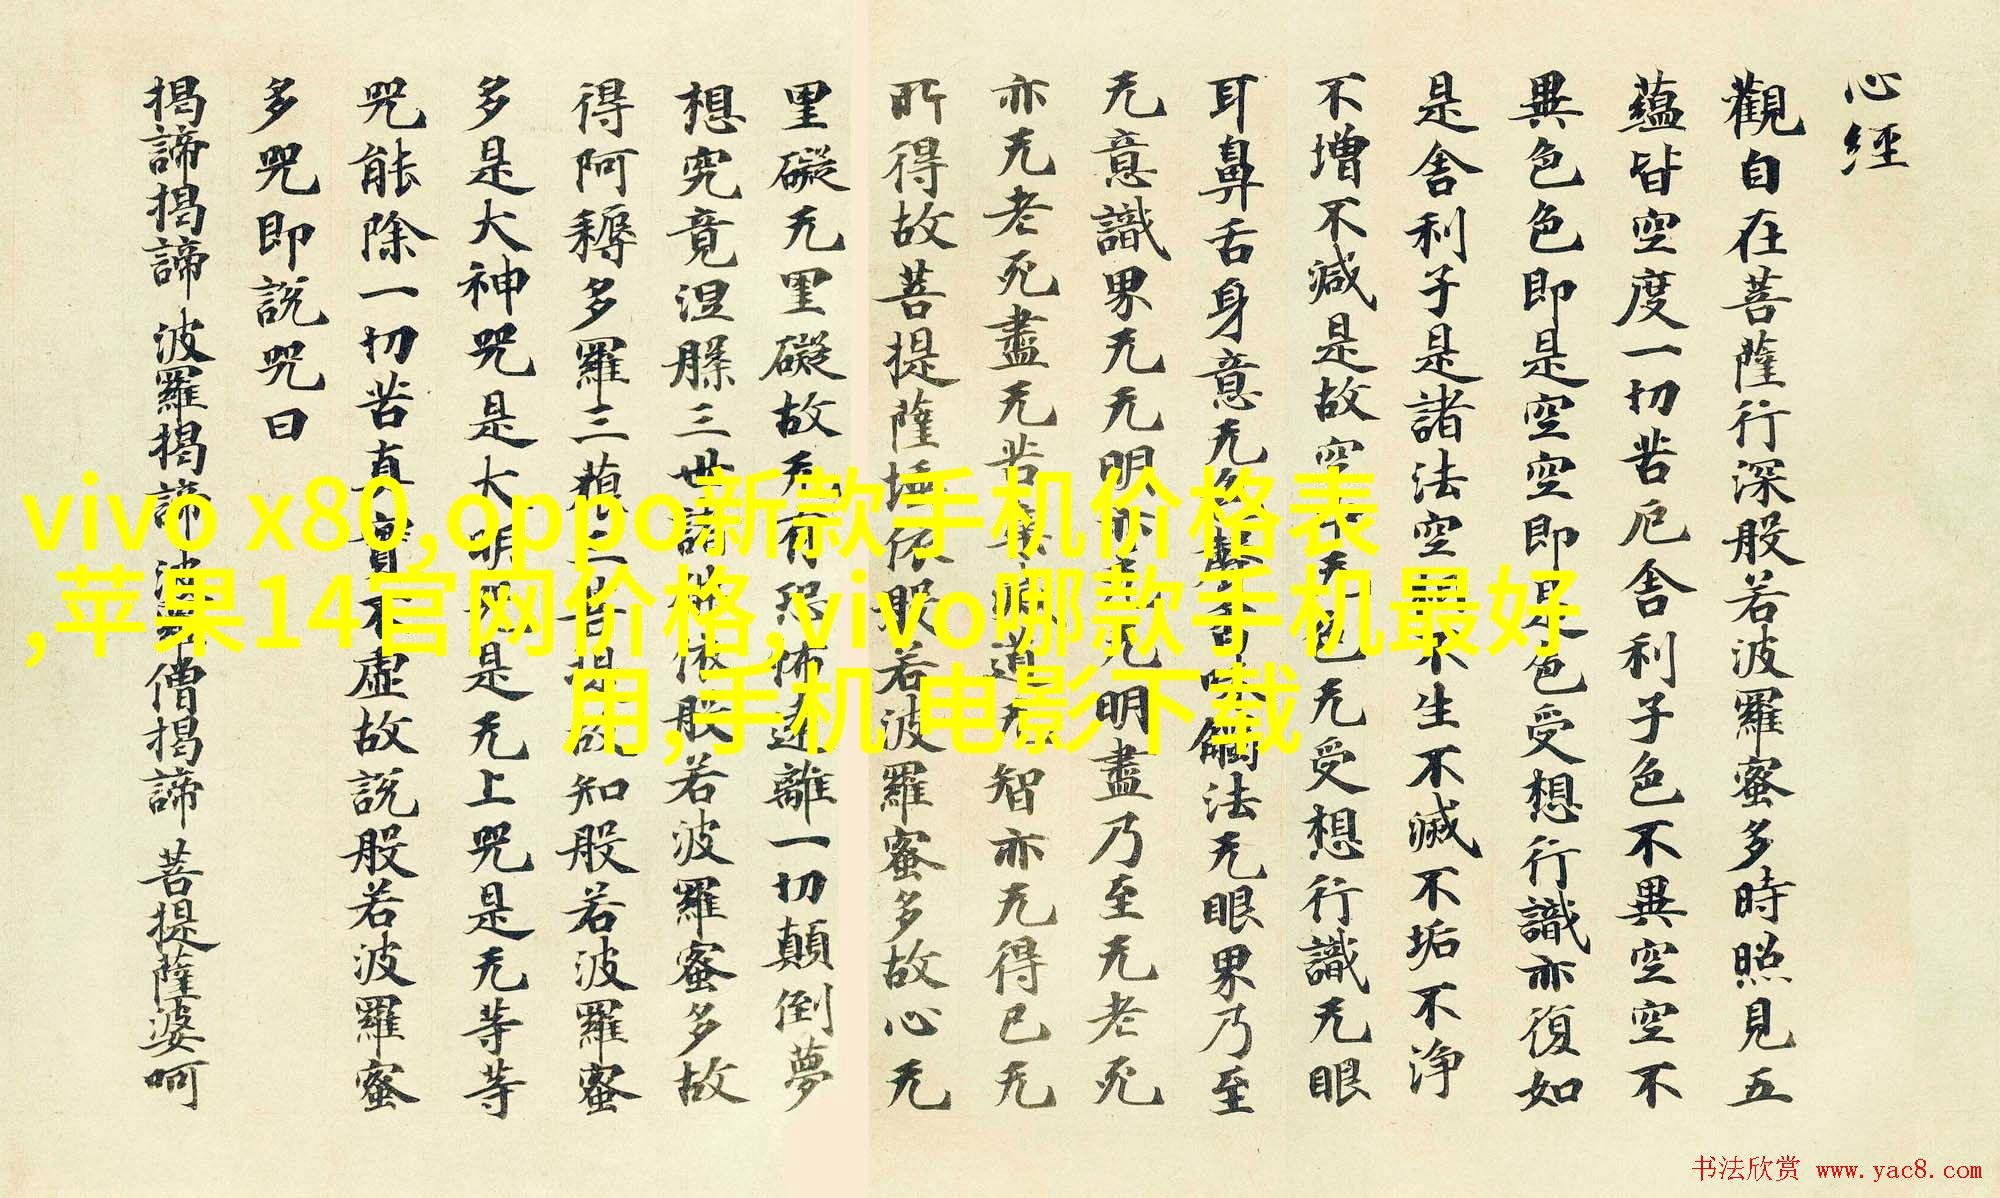 心經
觀自在菩薩行深般若波羅蜜多時照見五
蘊皆空度一切苦厄舍利子色不異空空不
異色色即是空空即是色受想行識亦復如
是舍利子是諸法空相不生不滅不垢不淨
不增不減是故空中无色无受想行識无眼
耳鼻舌身意无色聲香味觸法无眼界乃至
无意識界无无明亦无无明盡乃至无老死
亦无老死盡无苦集滅道无智亦无得已无
所得故菩提薩埵依般若波羅蜜多故心无
罣礙无罣礙故无有恐怖遠離一切顛倒夢
想究竟涅槃三世諸佛依般若波羅蜜多故
得阿耨多羅三藐三菩提故知般若波羅蜜
多是大神咒是大明咒是无上咒是无等等
咒能除一切苦真實不虛故說般若波羅蜜
多咒即說咒曰
揭諦揭諦 波羅揭諦 波羅僧揭諦 菩提薩婆呵
vivo x80,oppo新款手机价格表
,苹果14官网价格,vivo哪款手机最好
用,手机电影下载
书法欣赏 www.yac8.com